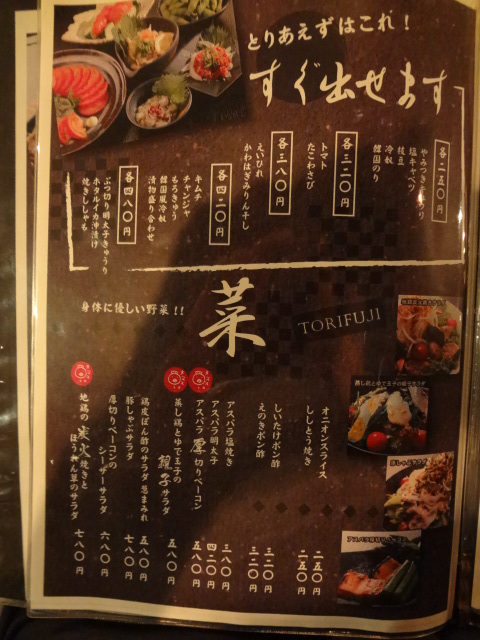 とりあえずはこれ！
すぐ出せます
各二五〇円
やみつききゅうり
塩キャベツ
枝豆
冷奴
韓国のり
各三二〇円
トマト
たこわさび
各三八〇円
えいひれ
かわはぎみりん干し
各四二〇円
キムチ
チャンジャ
もろきゅう
韓国風冷奴
漬物盛り合わせ
各四八〇円
ぶつ切り明太子きゅうり
ホタルイカ沖漬け
焼きししゃも
身体に優しい野菜!!
菜
TORIFUJI
オニオンスライス 二五〇円
ししとう焼き 二五〇円
しいたけポン酢 三二〇円
えのきポン酢 三二〇円
アスパラ塩焼き 三八〇円
アスパラ明太子 四二〇円
アスパラ厚切りベーコン 五八〇円
蒸し鶏とゆで玉子の親子サラダ 五八〇円
鶏皮ポン酢のサラダ 葱まみれ 五八〇円
豚しゃぶサラダ 七八〇円
厚切りベーコンの
シーザーサラダ 六八〇円
地鶏の炭火焼きと
ほうれん草のサラダ 七八〇円
蒸し鶏とゆで玉子の親子サラダ
豚しゃぶサラダ
アスパラ厚切りベーコン